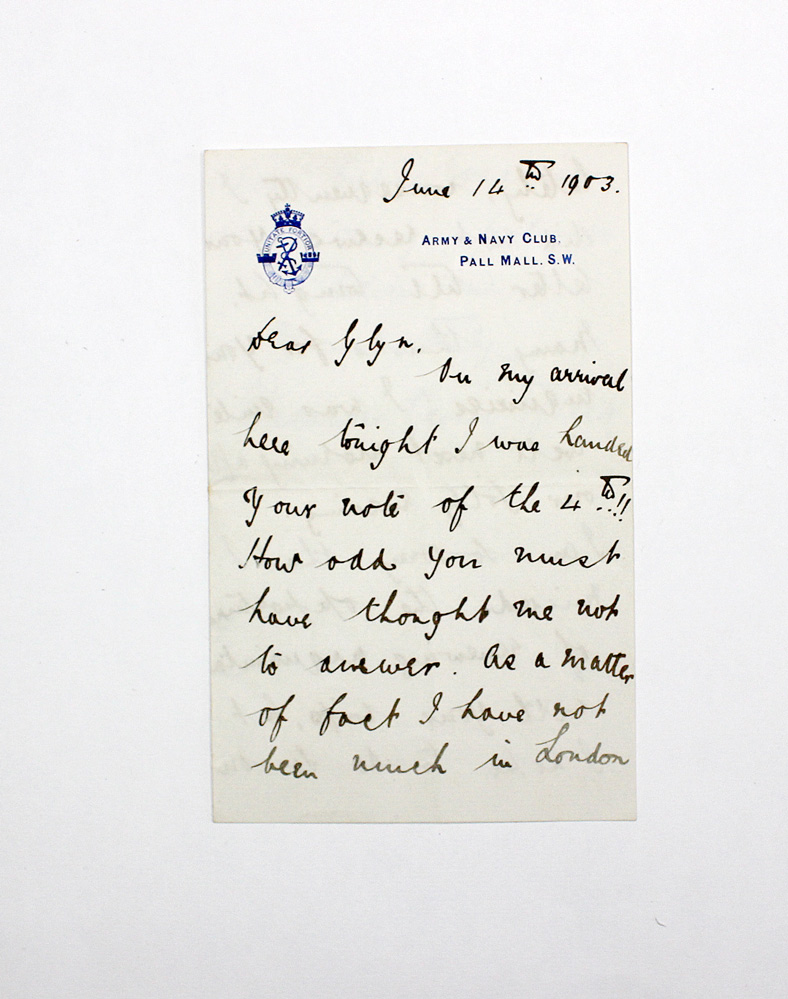 June 14th 1903.
UNITATE FORTIOR
ARMY & NAVY CLUB.
PALL MALL. S.W.
Dear Glyn.
On my arrival
here tonight I was handed
your note of the 4th!!
How odd you must
have thought me not
to answer. As a matter
of fact I have not
been much in London